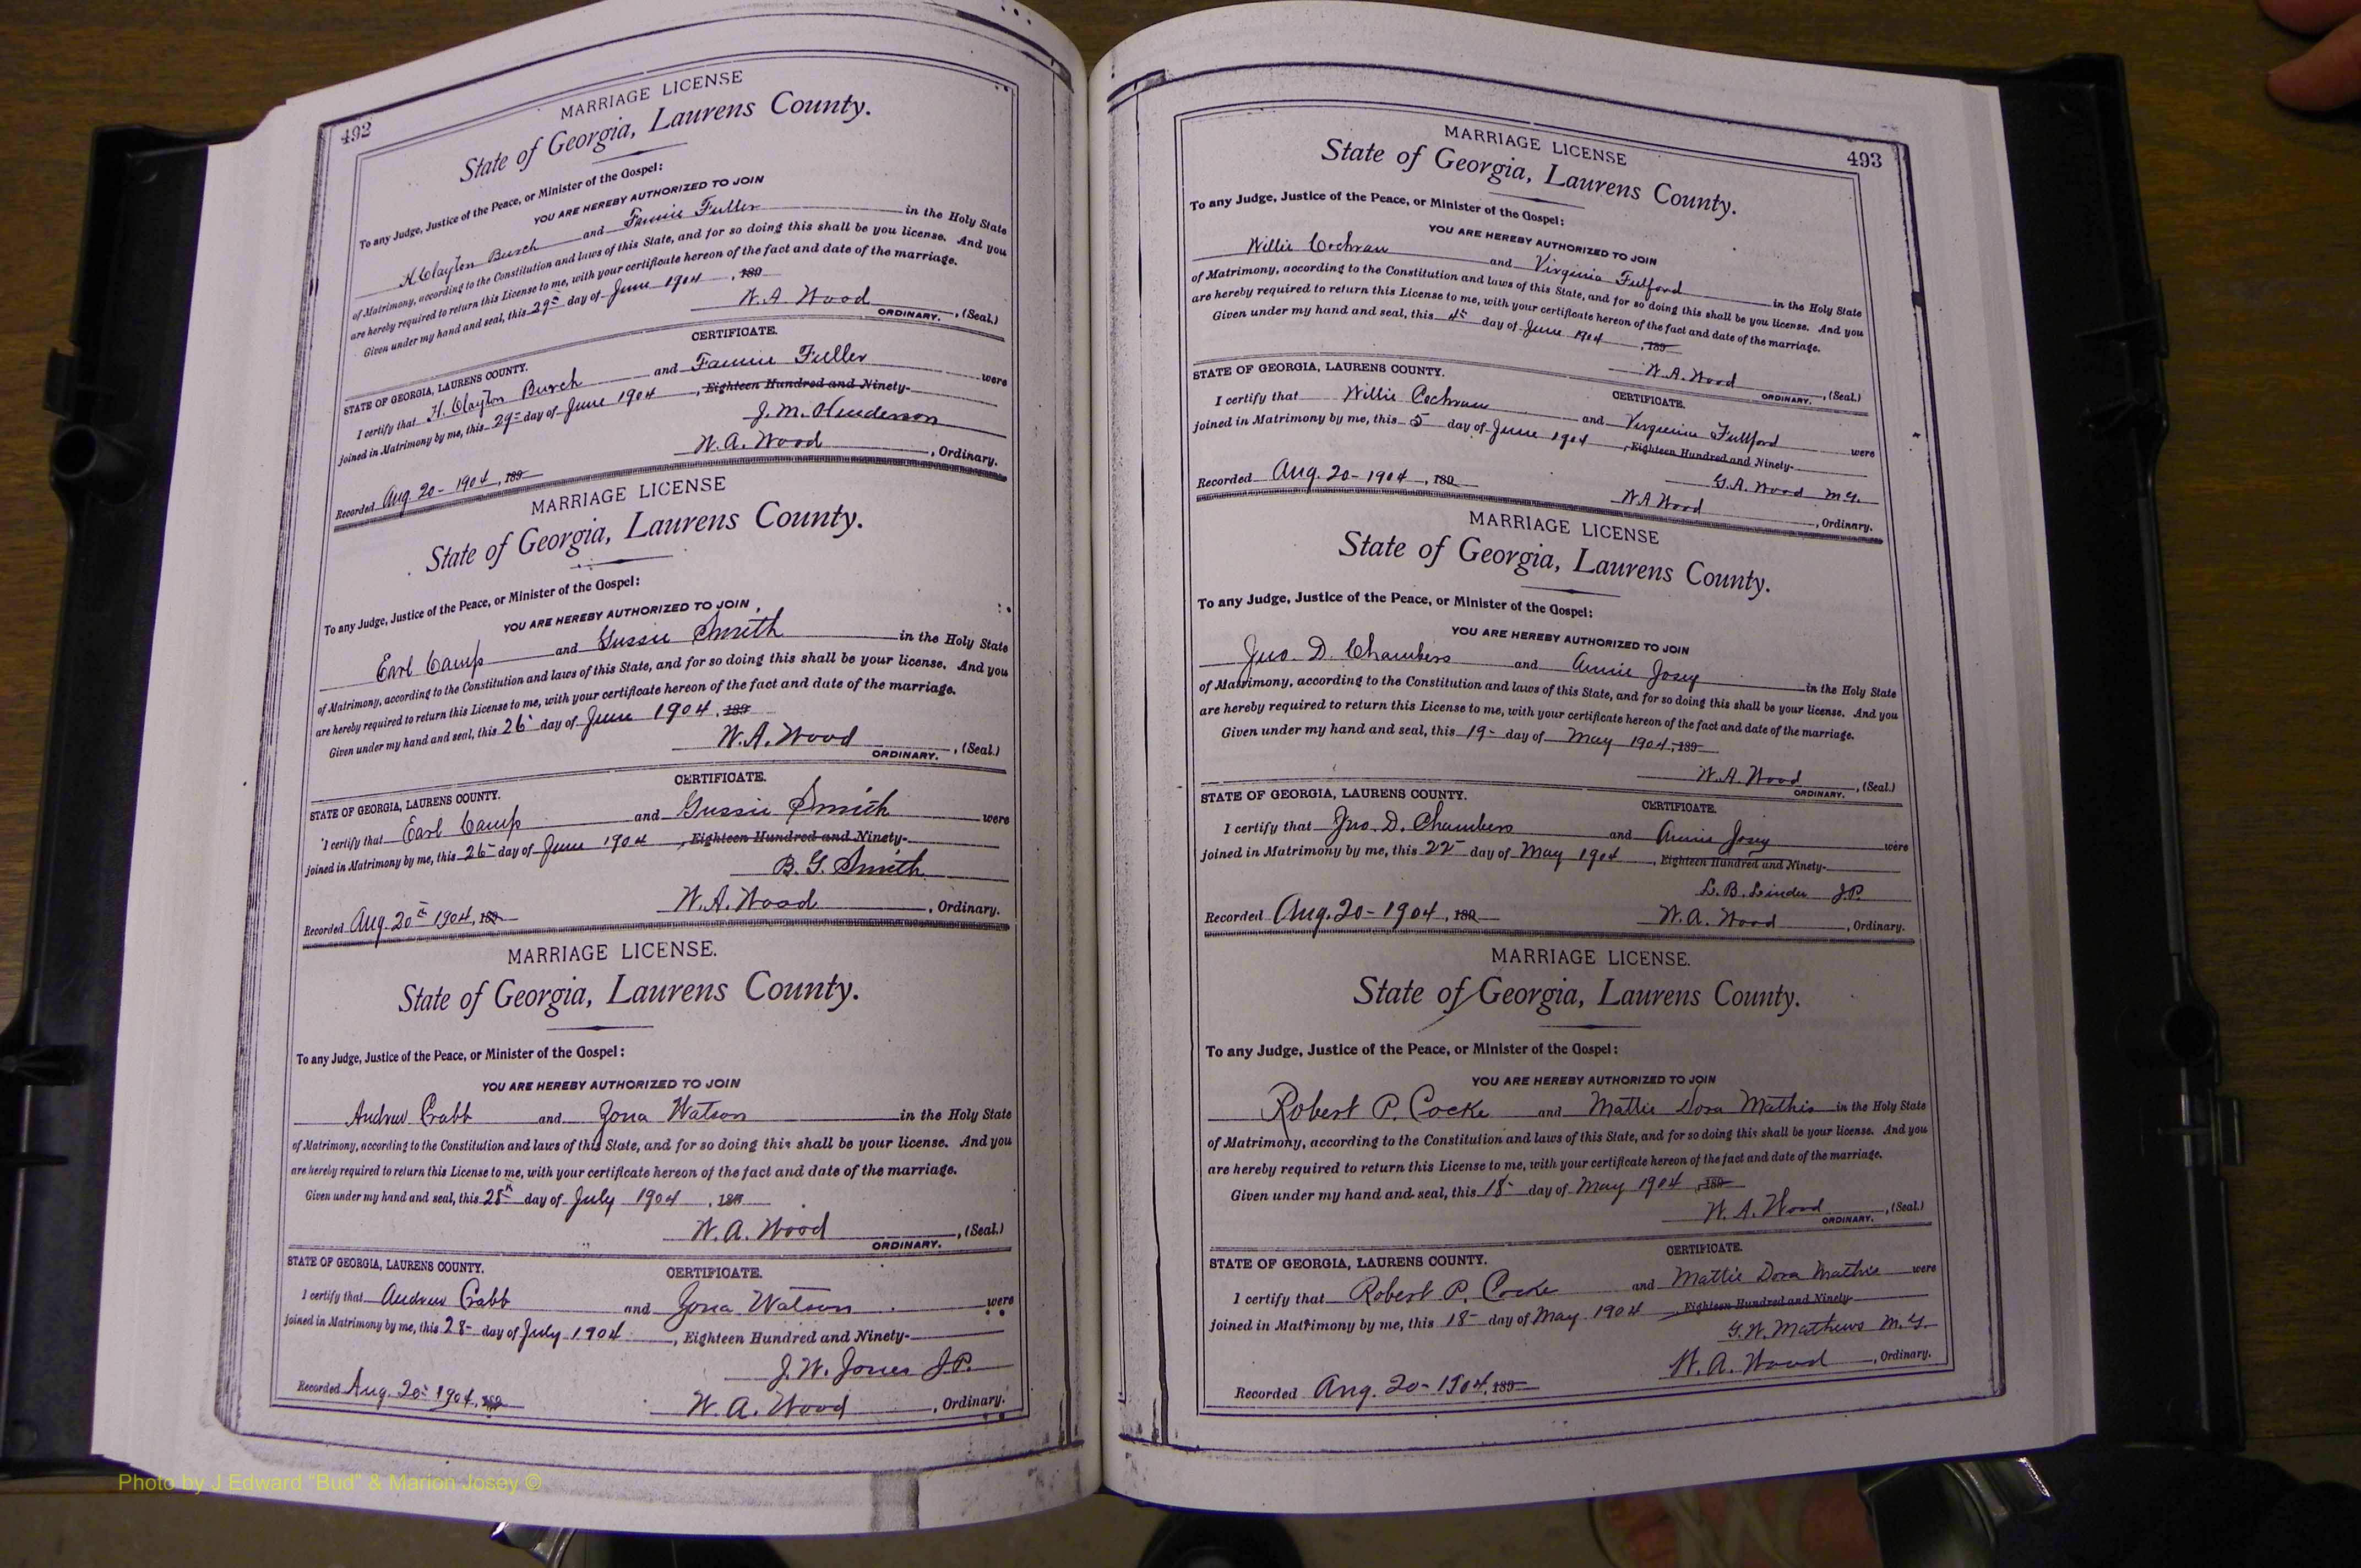 492
MARRIAGE LICENSE
State of Georgia, Laurens County.
To any Judge, Justice of the Peace, or Minister of the Gospel:
YOU ARE HEREBY AUTHORIZED TO JOIN
H. Clayton Burch and Fannie Fuller in the Holy State
of Matrimony, according to the Constitution and laws of this State, and for so doing this shall be you license. And you
are hereby required to return this License to me, with your certificate hereon of the fact and date of the marriage.
Given under my hand and seal, this 29th day of June 1904, 189
W. A. Wood, (Seal.)
ORDINARY.
CERTIFICATE.
STATE OF GEORGIA, LAURENS COUNTY.
I certify that H. Clayton Burch and Fannie Fuller were
joined in Matrimony by me, this 29th day of June 1904, Eighteen Hundred and Ninety-
J. M. Henderson
W. A. Wood, Ordinary.
Recorded Aug. 20 - 1904, 189
MARRIAGE LICENSE
State of Georgia, Laurens County.
To any Judge, Justice of the Peace, or Minister of the Gospel:
YOU ARE HEREBY AUTHORIZED TO JOIN
Earl Camp and Gussie Smith in the Holy State
of Matrimony, according to the Constitution and laws of this State, and for so doing this shall be your license. And you
are hereby required to return this License to me, with your certificate hereon of the fact and date of the marriage.
Given under my hand and seal, this 26 day of June 1904, 189
W. A. Wood, (Seal.)
ORDINARY.
CERTIFICATE.
STATE OF GEORGIA, LAURENS COUNTY.
I certify that Earl Camp and Gussie Smith were
joined in Matrimony by me, this 26 day of June 1904, Eighteen Hundred and Ninety-
B. G. Smith
W. A. Wood, Ordinary.
Recorded Aug. 20th 1904, 189
MARRIAGE LICENSE.
State of Georgia, Laurens County.
To any Judge, Justice of the Peace, or Minister of the Gospel:
YOU ARE HEREBY AUTHORIZED TO JOIN
Andrew Crabb and Zona Watson in the Holy State
of Matrimony, according to the Constitution and laws of this State, and for so doing this shall be your license. And you
are hereby required to return this License to me, with your certificate hereon of the fact and date of the marriage.
Given under my hand and seal, this 28th day of July 1904, 189
W. A. Wood, (Seal.)
ORDINARY.
STATE OF GEORGIA, LAURENS COUNTY. CERTIFICATE.
I certify that Andrew Crabb and Zona Watson were
joined in Matrimony by me, this 28 day of July 1904, Eighteen Hundred and Ninety-
J. W. Jones J.P.
Recorded Aug. 20th 1904, 189 W. A. Wood, Ordinary.
Photo by J Edward "Bud" & Marion Josey ©
493
MARRIAGE LICENSE
State of Georgia, Laurens County.
To any Judge, Justice of the Peace, or Minister of the Gospel:
YOU ARE HEREBY AUTHORIZED TO JOIN
Willie Cochran and Virginia Fulford in the Holy State
of Matrimony, according to the Constitution and laws of this State, and for so doing this shall be you license. And you
are hereby required to return this License to me, with your certificate hereon of the fact and date of the marriage.
Given under my hand and seal, this 4th day of June 1904, 189
W. A. Wood, (Seal.)
ORDINARY.
STATE OF GEORGIA, LAURENS COUNTY. CERTIFICATE.
I certify that Willie Cochran and Virginia Fullford were
joined in Matrimony by me, this 5 day of June 1904, Eighteen Hundred and Ninety-
G. A. Wood M.G.
Recorded Aug. 20 - 1904, 189 W A Wood, Ordinary.
MARRIAGE LICENSE
State of Georgia, Laurens County.
To any Judge, Justice of the Peace, or Minister of the Gospel:
YOU ARE HEREBY AUTHORIZED TO JOIN
Jno. D. Chambers and Annie Josey in the Holy State
of Matrimony, according to the Constitution and laws of this State, and for so doing this shall be your license. And you
are hereby required to return this License to me, with your certificate hereon of the fact and date of the marriage.
Given under my hand and seal, this 19- day of May 1904, 189
W. A. Wood, (Seal.)
ORDINARY.
STATE OF GEORGIA, LAURENS COUNTY. CERTIFICATE.
I certify that Jno. D. Chambers and Annie Josey were
joined in Matrimony by me, this 22 day of May 1904, Eighteen Hundred and Ninety-
L. B. Linder J.P.
Recorded Aug. 20 - 1904, 189 W. A. Wood, Ordinary.
MARRIAGE LICENSE.
State of Georgia, Laurens County.
To any Judge, Justice of the Peace, or Minister of the Gospel:
YOU ARE HEREBY AUTHORIZED TO JOIN
Robert P. Cocke and Mattie Dora Mathis in the Holy State
of Matrimony, according to the Constitution and laws of this State, and for so doing this shall be your license. And you
are hereby required to return this License to me, with your certificate hereon of the fact and date of the marriage.
Given under my hand and seal, this 18- day of May 1904, 189
W. A. Wood, (Seal.)
ORDINARY.
STATE OF GEORGIA, LAURENS COUNTY. CERTIFICATE.
I certify that Robert P. Cocke and Mattie Dora Mathis were
joined in Matrimony by me, this 18- day of May 1904, Eighteen Hundred and Ninety-
G. W. Mathews M.G.
Recorded Aug. 20 - 1904, 189 W. A. Wood, Ordinary.